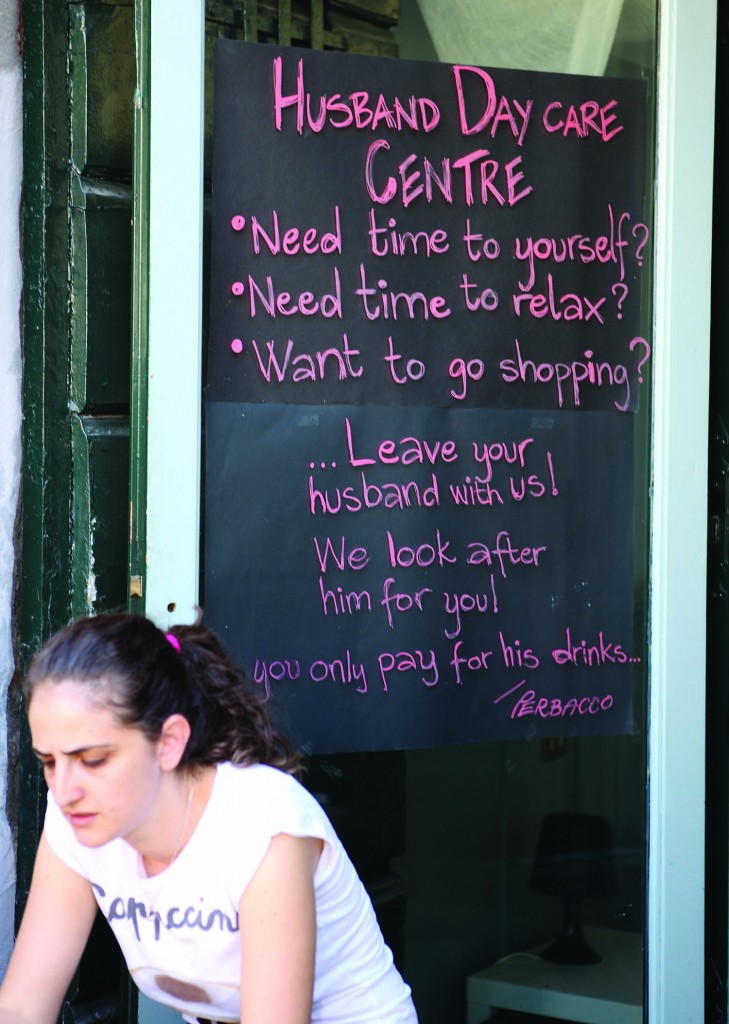 HUSBAND DAY CARE
CENTRE
• Need time to yourself?
• Need time to relax?
• Want to go shopping?
... Leave your
husband with us!
We look after
him for you!
you only pay for his drinks...
PERBACCO
Cappuccin